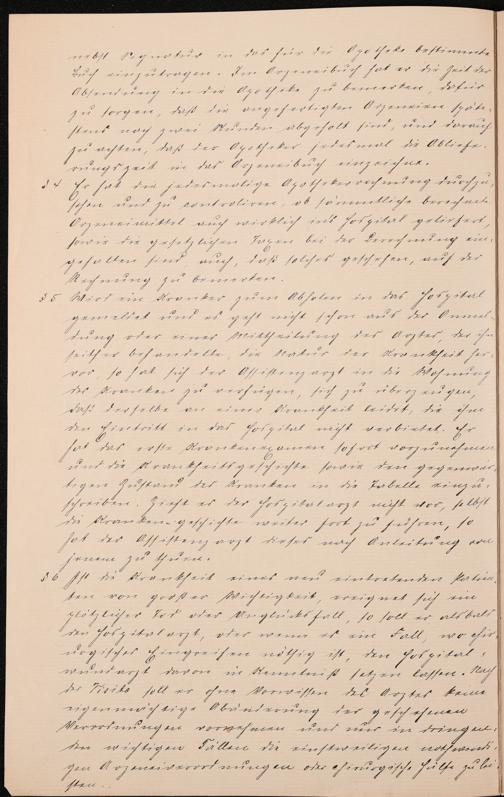 nebst Signatur in das für die Apotheke bestimmte
Buch einzutragen. Im Arzeneibuch hat er die Zeit der
Absendung in die Apotheke zu bemerken, dafür
zu sorgen, daß die angefertigten Arzeneien späte-
stens nach zwei Stunden abgeholt sind, und darauf
zu achten, daß der Apotheker jedesmal die Abliefe-
rungszeit in das Arzeneibuch einzeichne.
§ 4 Er hat die jedesmalige Apothekerrechnung durchzu-
sehen und zu controliren, ob sämmtliche berechnete
Arzeneimittel auch wirklich ins Hospital geliefert,
sowie die gesetzlichen Taxen bei der Berechnung ein-
gehalten sind, auch, daß solches geschehen, auf der
Rechnung zu bemerken.
§ 5 Wird ein Kranker zum Abholen in das Hospital
gemeldet und es geht nicht schon aus der Anmel-
dung oder einer Mittheilung des Arztes, der ihn
seither behandelte, die Natur der Krankheit her-
vor, so hat sich der Assistenzarzt in die Wohnung
des Kranken zu verfügen, sich zu überzeugen,
daß derselbe an einer Krankheit leidet, die ihm
den Eintritt in das Hospital nicht verbietet. Er
hat das erste Krankenexamen sofort vorzunehmen
und die Krankheitsgeschichte sowie den gegenwär-
tigen Zustand des Kranken in die Tabelle einzu-
schreiben. Zieht es der Hospitalarzt nicht vor, selbst
die Krankengeschichte weiter fort zu führen, so
hat der Assistenzarzt dieses nach Anleitung von
jenem zu thuen.
§ 6 Ist die Krankheit eines neu eintretenden Patien-
ten von großer Wichtigkeit, ereignet sich ein
plötzlicher Tod oder Unglücksfall, so soll er alsbald
den Hospitalarzt, oder wenn es ein Fall, wo chir-
urgisches Eingreifen nöthig ist, den Hospital-
wundarzt davon in Kenntniß setzen lassen. Nach
der Visite soll er ohne Vorwissen des Arztes keine
eigenmächtige Abänderung der geschehenen
Verordnungen vornehmen und nur in dringen-
den wichtigen Fällen die einstweiligen nothwendi-
gen Arzeneiverordnungen oder chirurgische Hülfe zu lei-
sten.